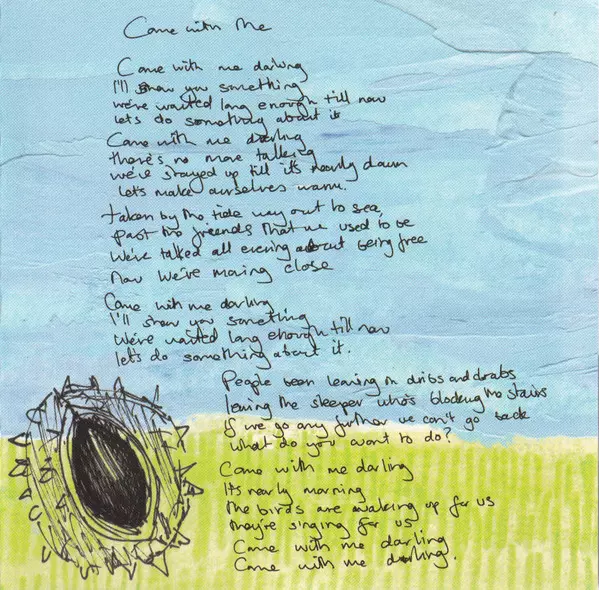 Come with Me
Come with me darling
I'll show you something
we've waited long enough till now
lets do something about it
Come with me darling
there's no more talking
we've stayed up till it's nearly dawn
let's make ourselves warm.
taken by the tide way out to sea
past the freends that we used to be
We've talked all evening about being free
Now we're moving close
Come with me darling
I'll show you something
We've waited long enough till now
let's do something about it.
People been leaving in dribs and drabs
leaving the sleeper who's blocking the stairs
If we go any further we can't go back
what do you want to do?
Come with me darling
Its nearly morning
The birds are waking up for us
they're singing for us
Come with me darling
Come with me darling.